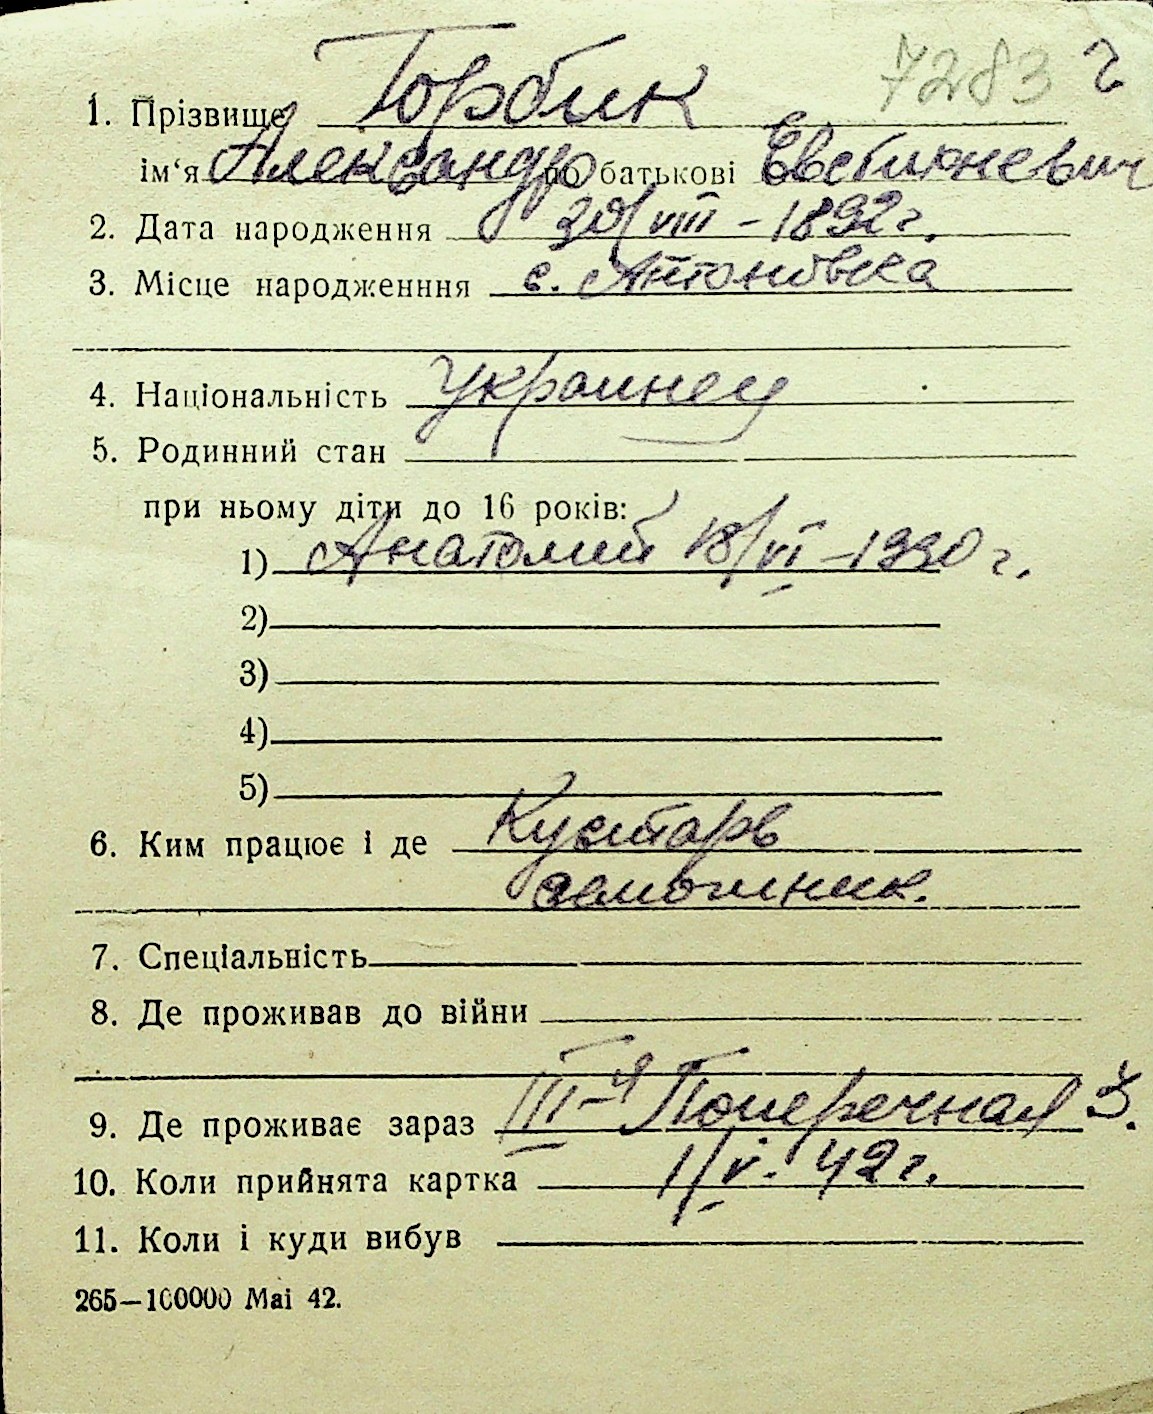 7283 г
1. Прізвище Горбик
ім‘я Александр по батькові Евстигневич
2. Дата народження 30/VIII – 1892 г.
3. Місце народженння с. Антоновка
4. Національність украинец
5. Родинний стан
при ньому діти до 16 років:
1) Анатолий 18/VI – 1930 г.
2)
3)
4)
5)
6. Ким працює і де Кустарь
7. Спеціальність
8. Де проживав до війни
9. Де проживає зараз III-я Поперечная 3.
10. Коли прийнята картка 1/V. 42 г.
11. Коли і куди вибув
265—100000 Маі 42.